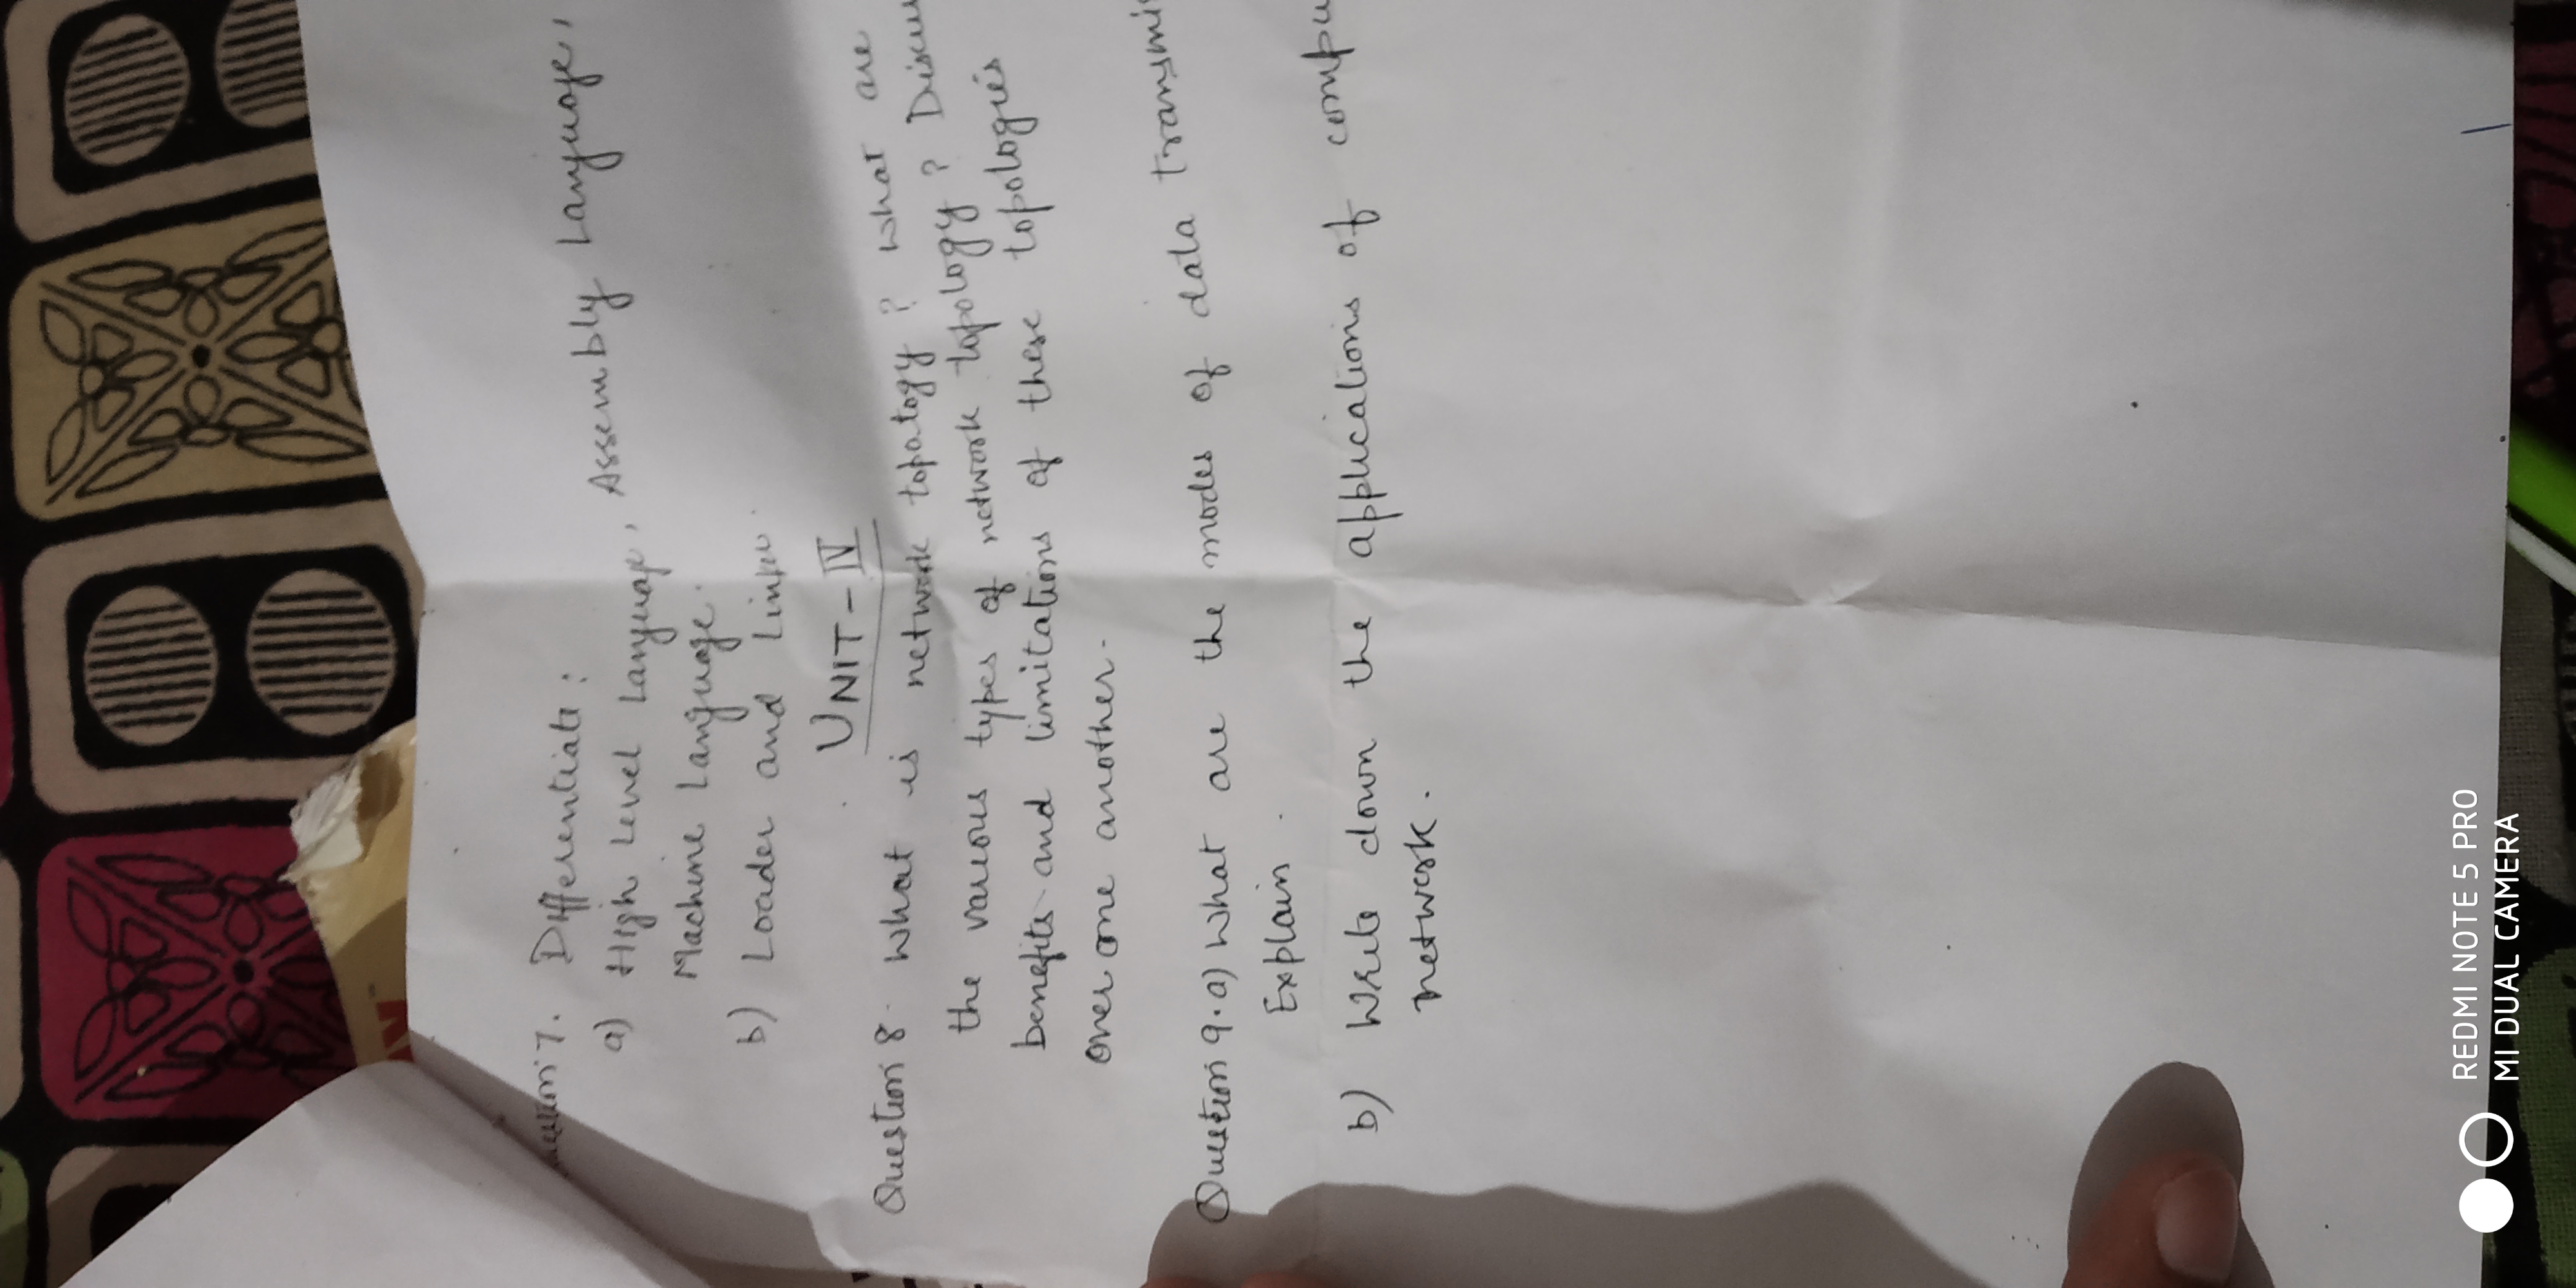 7. Differentiate:
a) High Level Language, Assembly Language,
Machine Language.
b) Loader and Linker.
UNIT-IV
Question 8. What is network topology? What are
the various types of network topology? Discus
benefits and limitations of these topologies
over one another.
Question 9. a) What are the modes of data transmis
Explain.
b) Write down the applications of compu
network.
REDMI NOTE 5 PRO
MI DUAL CAMERA